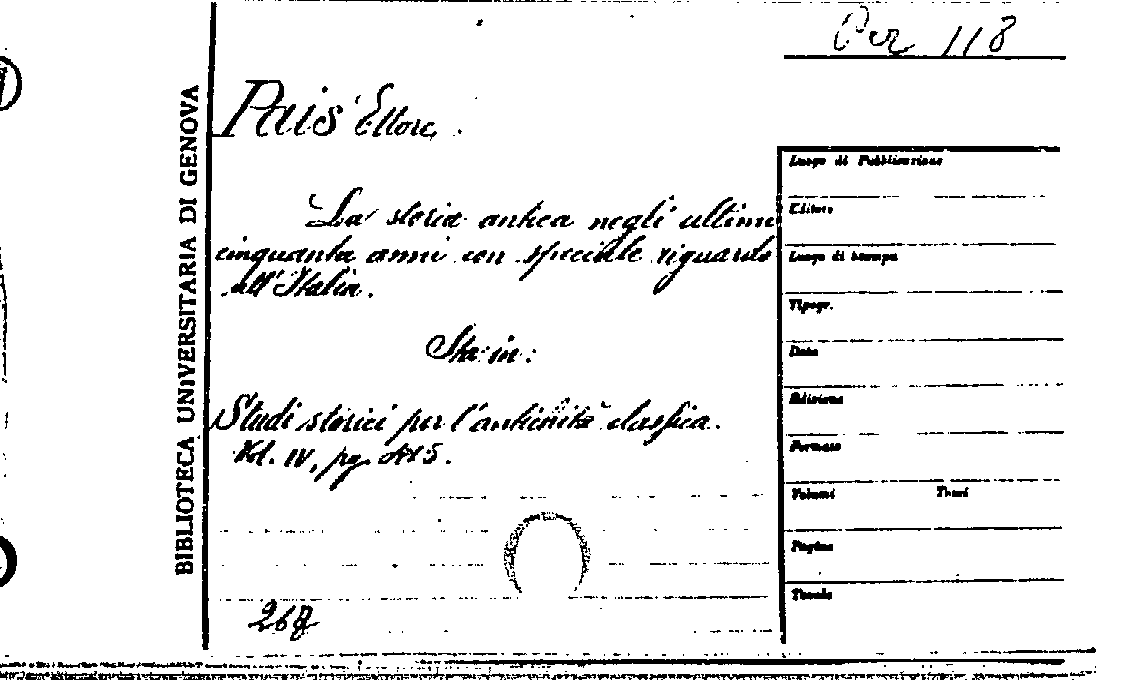 Per 118
BIBLIOTECA UNIVERSITARIA DI GENOVA
Pais Ettore.
La storia antica negli ultimi
cinquanta anni con speciale riguardo
all'Italia.
Sta in:
Studi storici per l'antichità classica.
Vol. IV, pg.
Luogo di Pubblicazione
Editore
Luogo di stampa
Tipogr.
Data
Edizione
Formato
Volumi Tomi
Pagine
Tavole